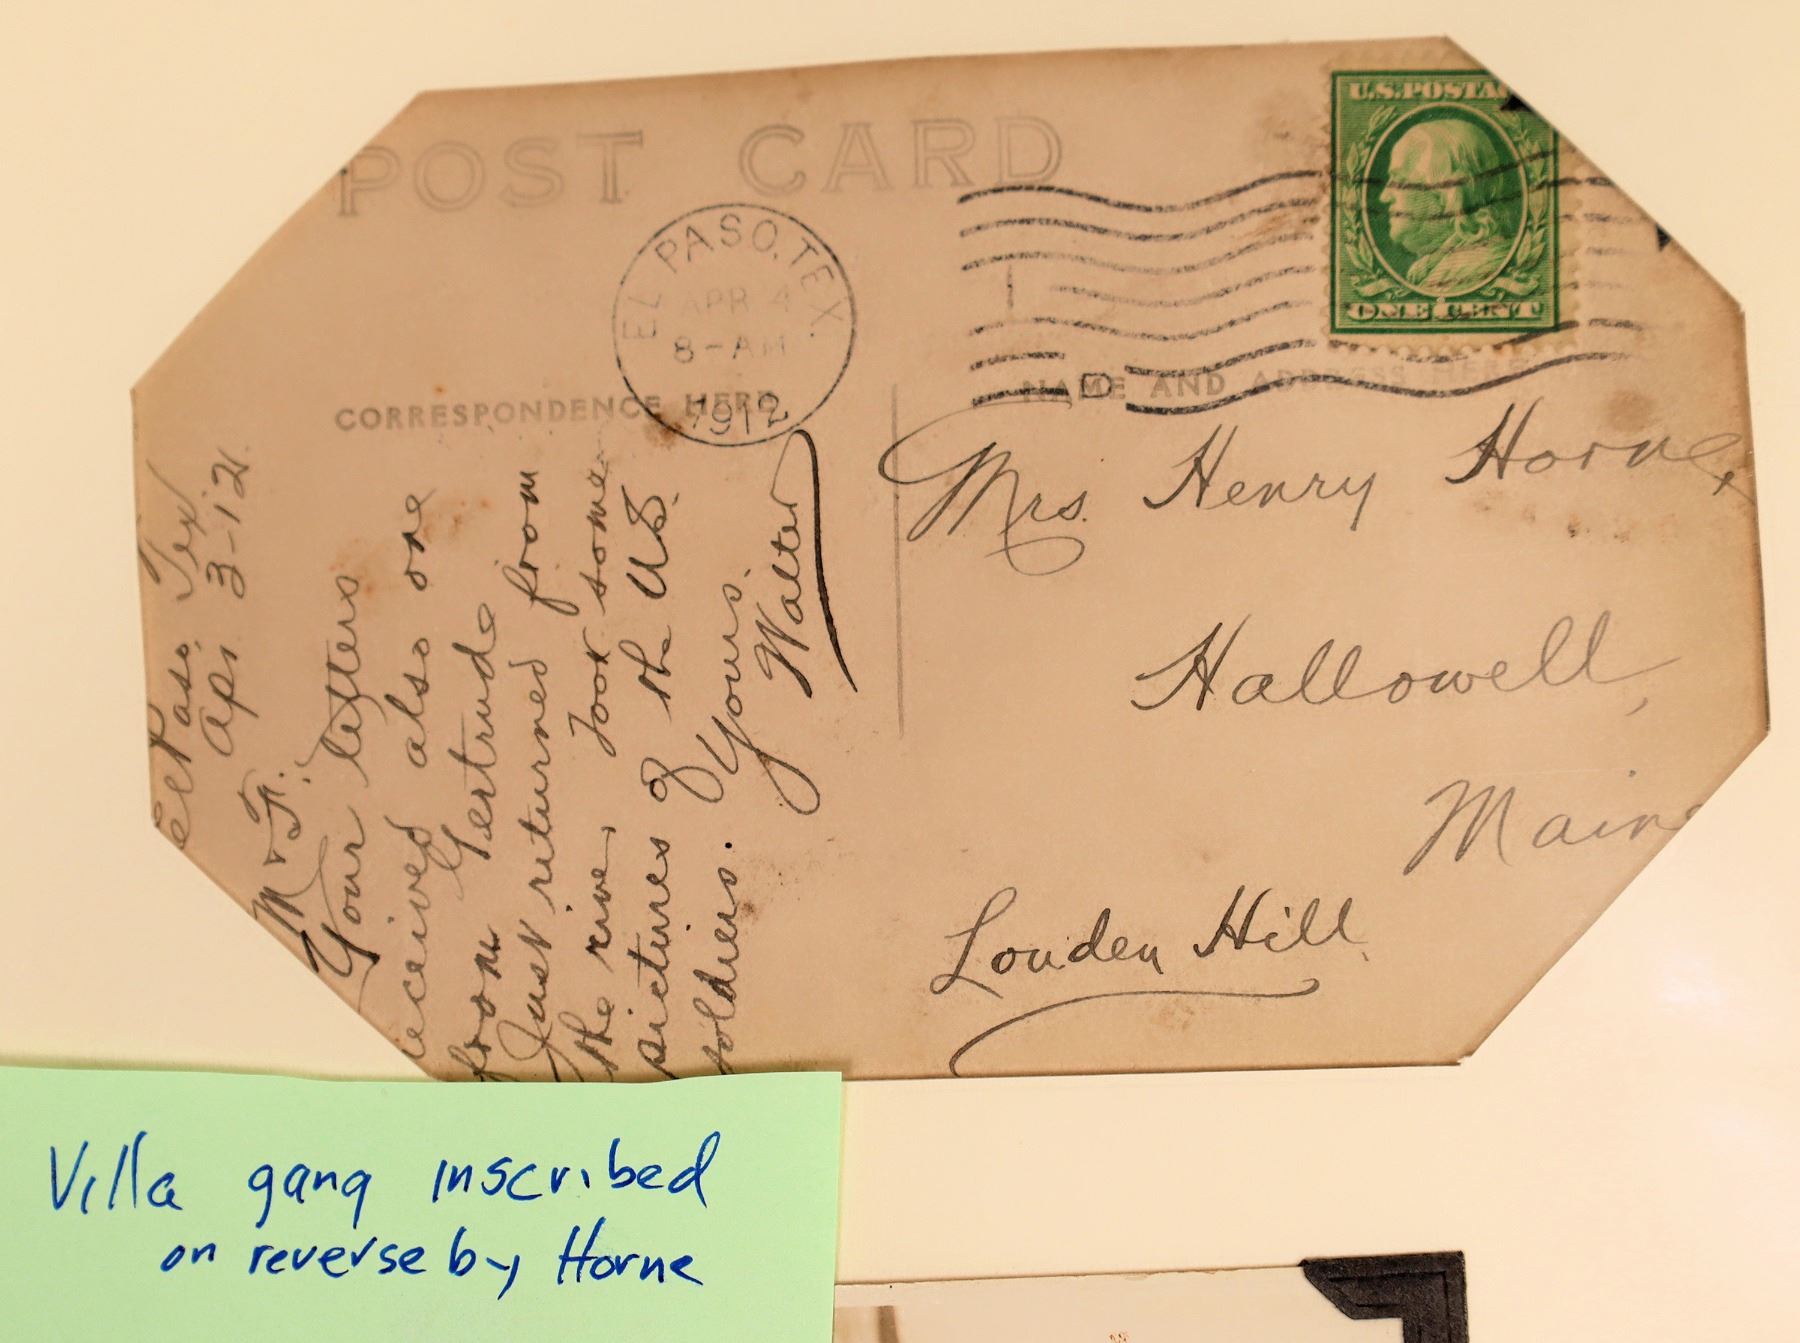 POST CARD
U.S.POSTAG
ONE CENT
EL PASO, TEX.
APR 4
8-AM
1912
D
CORRESPONDENCE HERE
NAME AND ADDRESS HERE
El Paso Tex
Apr. 3-12.
M & F.
Your letters
received also one
from Gertrude
Just returned from
the river, Took some
pictures of the U.S.
soldiers. Yours.
Walter
Mrs. Henry Horne,
Hallowell,
Maine
Louden Hill.
Villa gang inscribed
on reverse by Horne